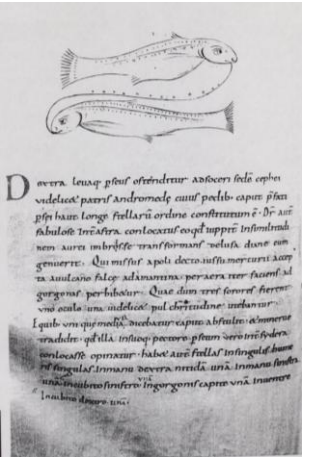 Dextera levaq; pseus ostenditur adsoceri sede cephei
videlicet patris andromede cuius pedib; caput
pisei haut longe stellarū ordine constitutum ē. Dr̄ autē
fabulose Inter astra conlocatus eoqd iuppter Insimilitudi
nem aurei imbris se transformans delusa diane cum
genuerit. Qui missus apoli decto iussu mercurii accep
ta avulcano falce adamantina per aera iter faciens ad
gorgonas perhibetur. Quae dum tres sorores fierent
uno oculo una videlicet pulchritudine utebantur.
Equib; una que media dicebatur capite absciso et minerve
tradidit. qd illa insuoq; pectore. pseum vero Inter sydera
conlocasse opinatur. habet autē stellas Insingulis hume
ris singulas. Inmanu dextera nitida unā. Inmanu sinistra
unā. Incubito sinistro unā. Ingorgonis capite unā. Inventre
Incubito dextro unā